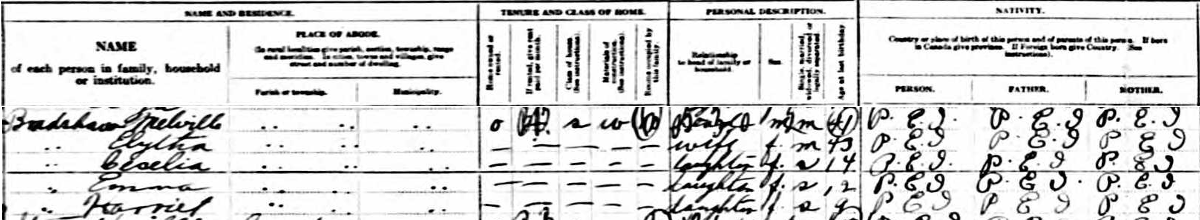 NAME AND RESIDENCE. TENURE AND CLASS OF HOME. PERSONAL DESCRIPTION. NATIVITY.
NAME
of each person in family, household
or institution.
PLACE OF ABODE.
(In rural localities give parish, section, township, range
and meridian. In cities, towns and villages, give
street and number of dwelling.)
Parish or township. Municipality.
Home owned or
rented.
If rented, give rent
paid per month.
Class of house
(See instructions).
Materials of
construction.
(See instructions).
Rooms occupied by
this family.
Relationship
to head of family or
household.
Sex.
Single, married,
widowed, divorced or
legally separated
Age at last birthday.
Country or place of birth of this person and of parents of this person. If born
in Canada give province. If Foreign born give Country. (See
instructions).
PERSON. FATHER. MOTHER.
Bradshaw Melville " " o s w Head m m 41 P. E. I P. E. I P. E. I
" " " — — — — — wife f. m 43 P. E. I P. E. I P. E. I
" Cecelia " " — — — — — daughter f. s 14 P. E. I P. E. I P. E. I
" Emma " " — — — — — daughter f. s 12 P. E. I P. E. I P. E. I
" Harriet " " — — — — — daughter f. s 9 P. E. I P. E. I P. E. I